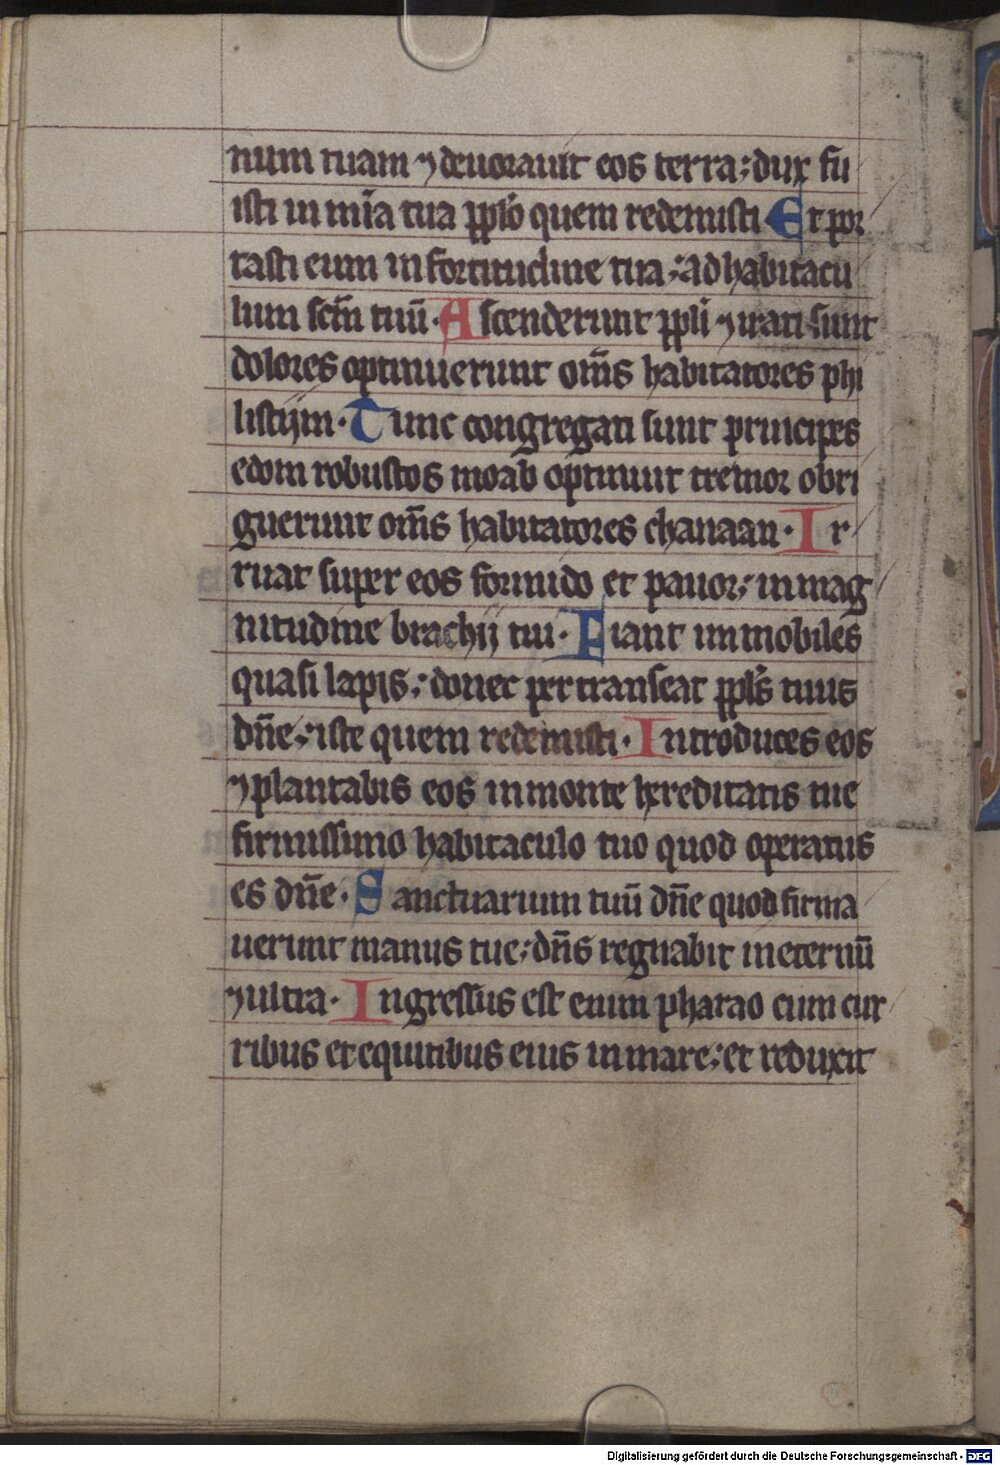 num tuam ⁊ deuorauit eos terra; dux fu
isti in mīa tua pplo quem redemisti Et por
tasti eum in fortitudine tua; ad habitacu
lum scm̄ tuū. Ascenderunt ppli ⁊ irati sunt
dolores optinuerunt om̄s habitatores phi
listijm. Tunc congregati sunt principes
edom robustos moab optinuit tremor obri
guerunt om̄s habitatores chanaan. Ir
ruat super eos formido et pauor; in mag
nitudine brachij tui. Fiant immobiles
quasi lapis; donec pertranseat ppls tuus
dn̄e; iste quem redemisti. Introduces eos
⁊ plantabis eos in monte hereditatis tue
firmissimo habitaculo tuo quod operatus
es dn̄e. Sanctuarium tuū dn̄e quod firma
uerunt manus tue; dn̄s regnabit in eternū
⁊ ultra. Ingressus est enim pharao cum cur
ribus et equitibus eius in mare; et reduxit
Digitalisierung gefördert durch die Deutsche Forschungsgemeinschaft - DFG